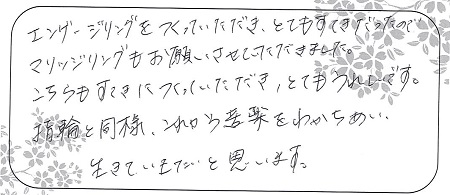 エンゲージリングをつくっていただき、とてもすてきだったので
マリッジリングもお願いさせていただきました。
こちらもすてきにつくっていただき、とてもうれしいです。
指輪と同様、これから苦楽をわかちあい、
生きていきたいと思います。